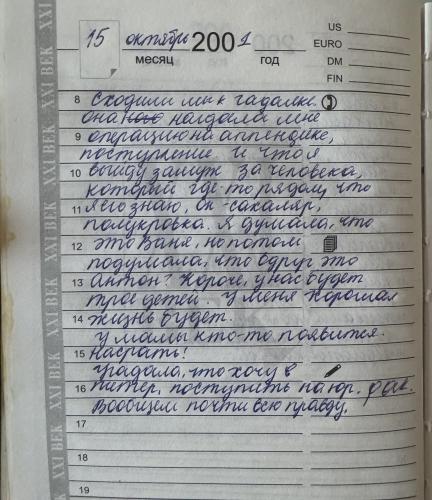 15 октябрь 2001
месяц год
US
EURO
DM
FIN
XXI ВЕК XXI ВЕК XXI ВЕК XXI ВЕК XXI ВЕК XXI ВЕК
8 Сходили мы к гадалке.
она нагадала мне
9 операцию на аппендикс,
поступление. И что я
10 выйду замуж за человека,
который где-то рядом, что
11 я его знаю, он - сахаляр,
полукровка. Я думала, что
12 это Ваня, но потом
подумала, что вдруг это
13 Антон? Короче, у нас будет
трое детей. У меня хорошая
14 жизнь будет.
У мамы кто-то появится.
15 Насрать!
Угадала, что хочу в
16 Питер, поступить на юр. фак.
Вообщем почти всю правду.
17
18
19